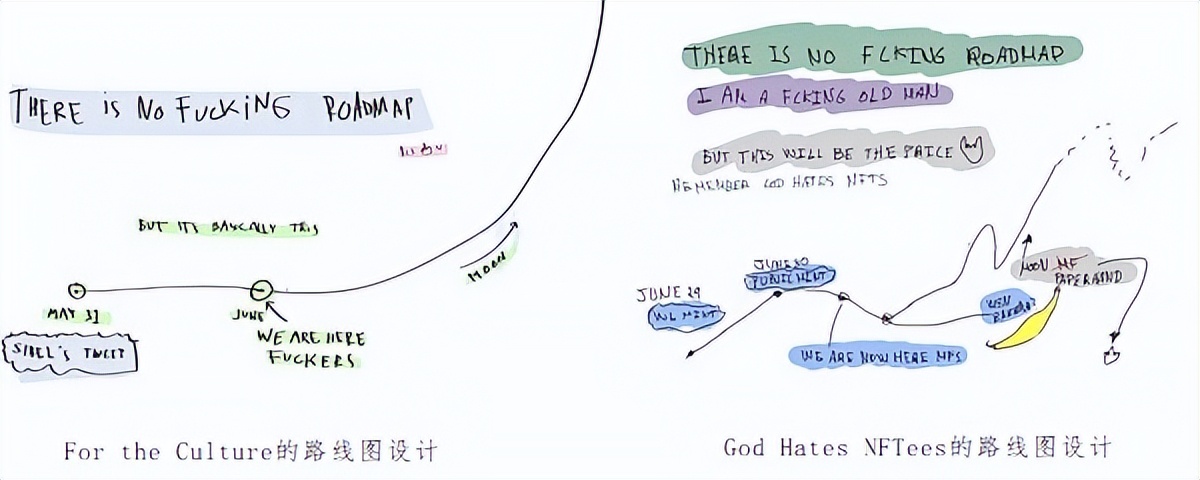 THERE is NO FUCKING ROADMAP
BUT ITS BASICALLY THIS
MOON
MAY 31
JUNE
SIBEL'S TWEET
WE ARE HERE
FUCKERS
For the Culture的路线图设计
THERE IS NO FCKING ROADMAP
I AM A FCKING OLD MAN
BUT THIS WILL BE THE PRICE
REMEMBER GOD HATES NFTS
JUNE 30
PUBLIC MINT
JUNE 29
WL MINT
MOON MF
PAPERHAND
WEN
WE ARE NOW HERE MFS
God Hates NFTees的路线图设计